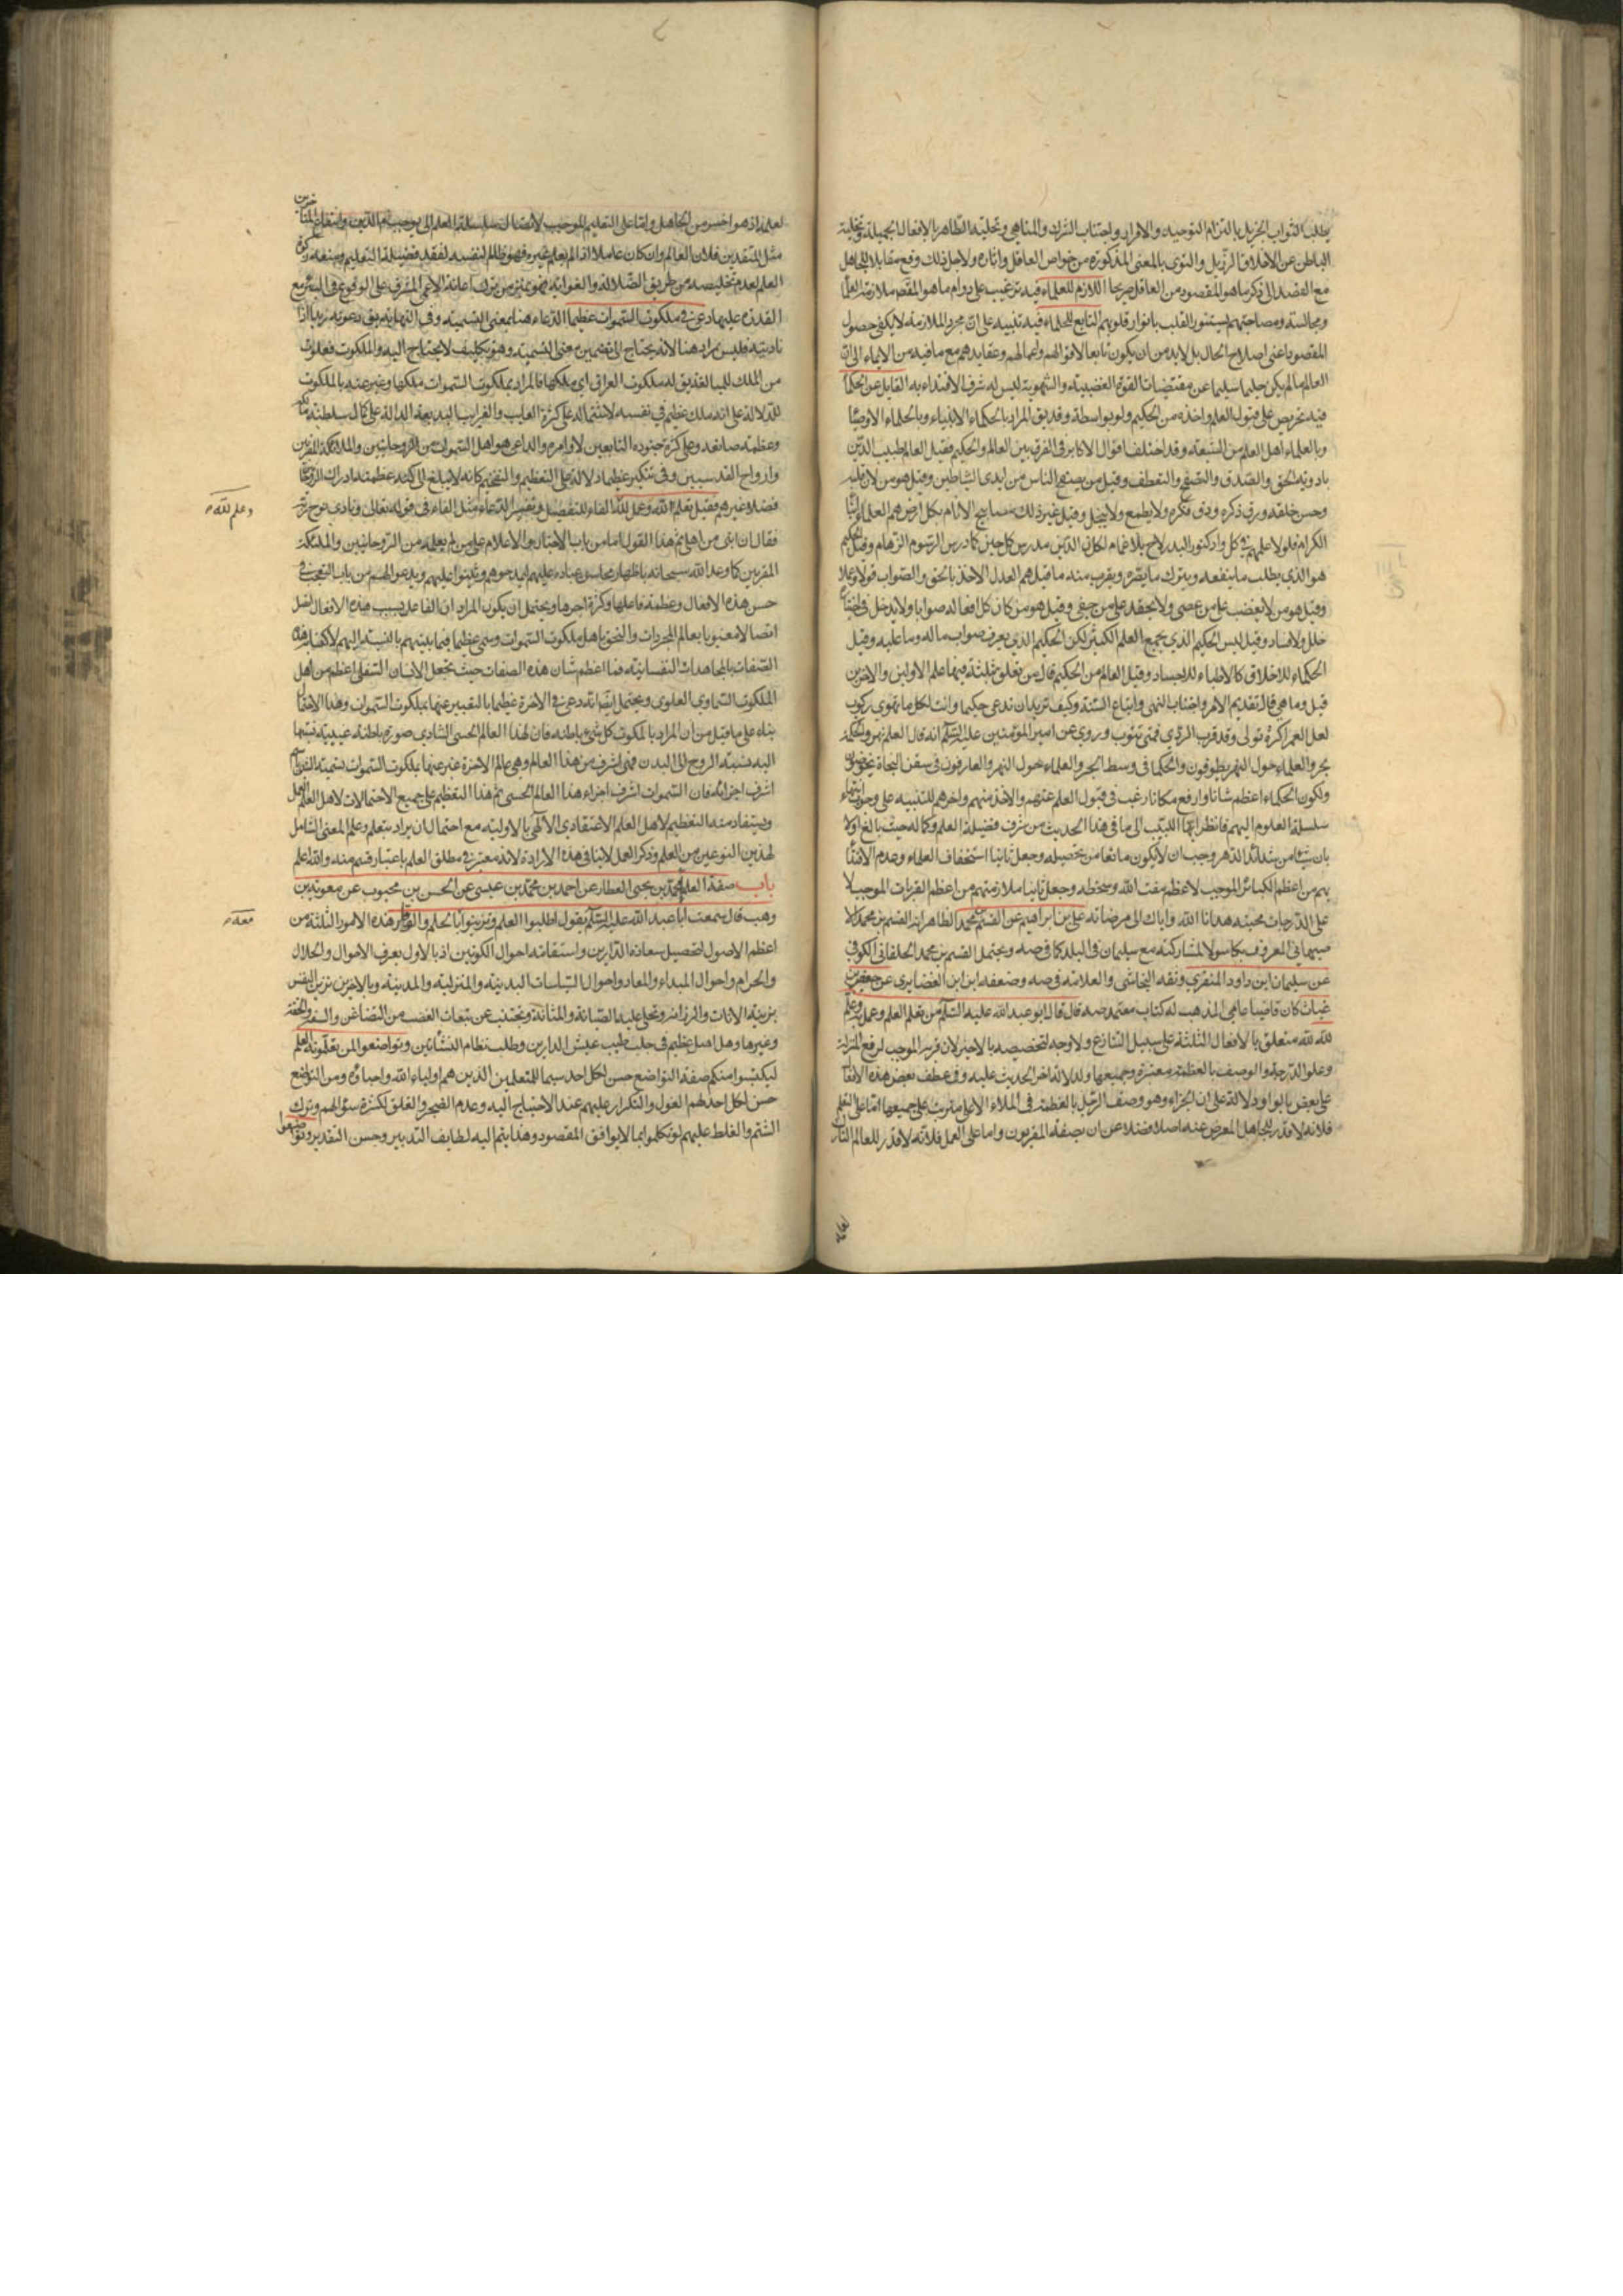 يطلب الثواب الجزيل بالتزام التوحيد والاقرار واجتناب الشرك والمناهي وتحلية الظاهر بالافعال الجميلة وتخلية
الباطن عن الاخلاق الرذيل والتقوى بالمعنى المذكورة من خواص العاقل واثاره ولاجل ذلك وقع مقابلا للجاهل
مع القصد الى ذكر ما هو المقصود من العاقل صريحا اللازم للعلماء فيه ترغيب على دوام ما هو المقصود ملازمة العلما
ومجالستهم ومصاحبتهم ليستنور القلب بانوار قلوبهم التابع للحلماء فيه تنبيه على ان مجرد الملازمة لا يكفي في حصول
المقصود اعنى اصلاح الحال بل لابد من ان يكون تابعا لاقوالهم واعمالهم وعقايدهم مع ما فيه من الايماء الى ان
العالم ما لم يكن حليما سليما عن مقتضيات القوة الغضبية والشهوية ليس له شرف الاقتداء به القابل عن الحكما
فيه تحريص على قبول العلم واخذه من الحكيم ولو بواسطة وقد يق المراد بالحكماء الانبياء وبالحلماء الاوصيا
وبالعلماء اهل العلم من الشيعة وقد اختلف اقوال الاكابر في الفرق بين العالم والحكيم فقيل العالم طبيب الدين
بادوية الحق والصدق والتصفح والتعطف وقيل من ينجى الناس من ايدى الشياطين وقيل هو من لان قلبه
وحسن خلقه ورق ذكره ودق فكره ولا يطمع ولا يبخل وقيل غير ذلك
هو الذي يطلب ما ينفعه ويترك ما يضره ويقرب منه ما قيل هم العدل الاخذ بالحق والصواب قولا وعملا
وقيل هو من لا يغضب على من عصى ولا يحقد على من جفى وقيل هو من كان كل افعاله صوابا ولا يدخل في
خلل ولا فساد وقيل ليس الحكيم الذي يجمع العلم الكثير لكن الحكيم الذي يعرف صواب ما له وما عليه وقيل
الحكماء للاخلاق كالاطباء للاجساد وقيل العالم من الحكيم قال من تعلق بثلثة فيها علم الاولين والاخرين
قيل وما هي قال تقديم الامر واجتناب النهى واتباع السنة وكيف تريد ان تدعى حكيما وانت لكل ما تهوى ركوب
لعل العمر اكثره تولى وقد قرب الردى فمتى تتوب وروي عن امير المؤمنين عليه السلام انه قال العلم نهر والحكمة
بحر والعلماء حول النهر يطوفون والحكما في وسط البحر والعارفون في سفن النجاة يخوضون
ولكون الحكماء اعظم شانا وارفع مكانا رغب في قبول العلم عنهم والاخذ منهم واخرهم للتنبيه على وجوب انتهاء
سلسلة العلوم اليهم فانظر ايها اللبيب الى ما في هذا الحديث من شرف فضيلة العلم وكماله حيث بالغ اولا
بان شيئا من شدائد الدهر وجب ان لا يكون مانعا من تحصيله وجعل ثانيا استخفاف العلماء وعدم الاقتدا
بهم من اعظم الكبائر الموجب لاعظم مقت الله وسخطه وجعل ثالثا ملازمتهم من اعظم القربات الموجب لا
على الدرجات محبته هدانا الله واياك الى مرضاته علي بن ابراهيم عن القسم بن محمد الظاهر انه القسم بن محمد الا
صبهاني المعروف بكاسولا لمشاركته مع سليمان في البلد كما في صه ويحتمل القسم بن محمد الخلقاني الكوفي
عن سليمان ابن داود المنقري وثقه النجاشي والعلامة في صه وضعفه ابن الغضايرى عن حفص بن
غياث كان قاضيا عامي المذهب له كتاب معتمد صه قال قال ابو عبد الله عليه السلام من تعلم العلم وعمل به وعلم
لله لله متعلق بالافعال الثلثة على سبيل التنازع ولا وجه لتخصيصه بالاخير لان قربه الموجب لرفع المنزلة
وعلو الدرجة والوصف بالعظمة معتبرة وجميعها ولدلالة اخر الحديث عليه وفي عطف بعض هذه الافعا
على بعض بالواو دلالة على ان الجزاء وهو وصف الرجل بالعظمة في الملاء الاعلى مترتب على جميعها اما على التعلم
فلانه لا قدر للجاهل المعرض عنه اصلا فضلا عن ان يصفه المقربون واما على العمل فلانه لا قدر للعالم التارك
لعلمه اذ هو اخسر من الجاهل واما على التعليم الموجب لاتصال سلسلة العلم الى يوم الدين وانتفاع المتاخرين
مثل المتقدمين فلان العالم وان كان عاملا اذا لم يعلم غيره فهو ظالم لنفسه لفقد فضيلة التعليم ومنعه زكوة
العلم لعدم تخليصه من طريق الضلالة والغواية فهو بمنزلة من ترك اعانة الاعمى المشرف على الوقوع في البئر مع
القدرة عليها دعي في ملكوت السموات عظيما الدعاء هنا بمعنى التسمية وفي النهاية يق دعوته زيدا اذا
ناديته فليس مراد هنا لانه يحتاج الى تضمين معنى التسمية وهو تكلف لا يحتاج اليه والملكوت فعلوت
من الملك للمبالغة يق له ملكوت العراق اي ملكها فالمراد بملكوت السموات ملكها وعبر عنه بالملكوت
للدلالة على انه ملك عظيم في نفسه لاشتماله على كثرة العجايب والغرايب البديعة الدالة على كمال سلطنة مالكه
وعظمة صانعه وعلى كثرة جنوده التابعين لاوامره والداعي هو اهل السموات من الروحانيين والملائكة المقربين
وارواح القدسيين وفي تنكير عظيما دلالة على التعظيم والتفخيم كانه لا يبلغ الى كنه عظمته ادراك الروحا
فضلا وغيرهم فقيل تعلم لله وعمل لله الفاء للتفصيل وتفسير الدعاء مثل الفاء في قوله تعالى ونادى نوح ربه
فقال ان ابنى من اهلى ثم هذا القول اما من باب الاخبار والاعلام على من لم يعلمه من الروحانيين والملائكة
المقربين كما وعد الله سبحانه باظهار محاسن عباده عليهم ليمدحوهم ويثنوا عليهم ويدعوا لهم من باب التعجب في
حسن هذه الافعال وعظمة فاعلها وكثرة اجرها ويحتمل ان يكون المراد ان الفاعل بسبب هذه الافعال يتصل
اتصالا معنويا بعالم المجردات والتحق باهل ملكوت السموات وسمى عظيما فيما بينهم بالنسبة اليهم لاكتسابه هذه
الصفات بالمجاهدات النفسانية فما اعظم شان هذه الصفات حيث تجعل الانسان السفلى اعظم من اهل
الملكوت السماوى العلوى ويحتمل ايضا انه دعى في الاخرة عظيما بالتعبير عنها بملكوت السموات وهذا الاحتما
بناء على ما قيل من ان المراد بالملكوت كل شيء باطنه فان لهذا العالم الحسى الشهادى صورة باطنة غيبية نسبتها
اليه نسبة الروح الى البدن فهي اشرف من هذا العالم وهي عالم الاخرة عبر عنها بملكوت السموات تسمية الشيء باسم
اشرف اجزائه فان السموات اشرف اجزاء هذا العالم الحسى ثم هذا التعظيم على جميع الاحتمالات لاهل العلم العمل
ويستفاد منه التعظيم لاهل العلم الاعتقادى الالهى بالاولية مع احتمال ان يراد بتعلم وعلم المعنى الشامل
لهذين النوعين من العلم وذكر العمل لا ينافي هذه الارادة لانه معتبر في مطلق العلم باعتبار قسم منه والله اعلم
باب صفة العلماء محمد بن يحيى العطار عن احمد بن محمد بن عيسى عن الحسن بن محبوب عن معوية بن
وهب قال سمعت ابا عبد الله عليه السلام يقول اطلبوا العلم وتزينوا بالحلم والوقار هذه الامور الثلثة من
اعظم الاصول لتحصيل سعادة الدارين واستقامة احوال الكونين اذ بالاول يعرف الاحوال والحلال
والحرام واحوال المبداء والمعاد واحوال السياسات البدنية والمنزلية والمدنية وبالاخرين تزين النفس
بزينة الاناة والرزانة وتحلى عليه الصيانة والمتانة وتجتنب عن تبعات الغضب من الضغائن والسفه والخفة
وغيرها وهما اصل عظيم في جلب طيب عيش الدارين وطلب نظام النشأتين وتواضعوا لمن تعلمونه العلم
ليكتسبوا منكم صفة التواضع حسن لكل احد سيما للمتعلمين الذين هم اولياء الله واحباؤه ومن التواضع
حسن لكل احد لهم القول والتكرار عليهم عند الاحتياج اليه وعدم الضجر والقلق لكثرة سؤالهم وترك
الشتم والغلط عليهم لو تكلموا بما لا يوافق المقصود وهذا يتم اليه لطايف التدبير وحسن التقدير وتواضعوا
وعلم لله
معه